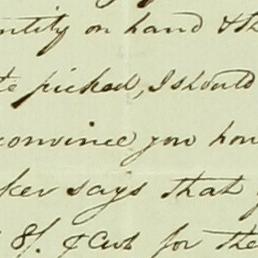 ntity on hand & th
te picked, I should
convince you how
ker says that
8/. & Cwt for the